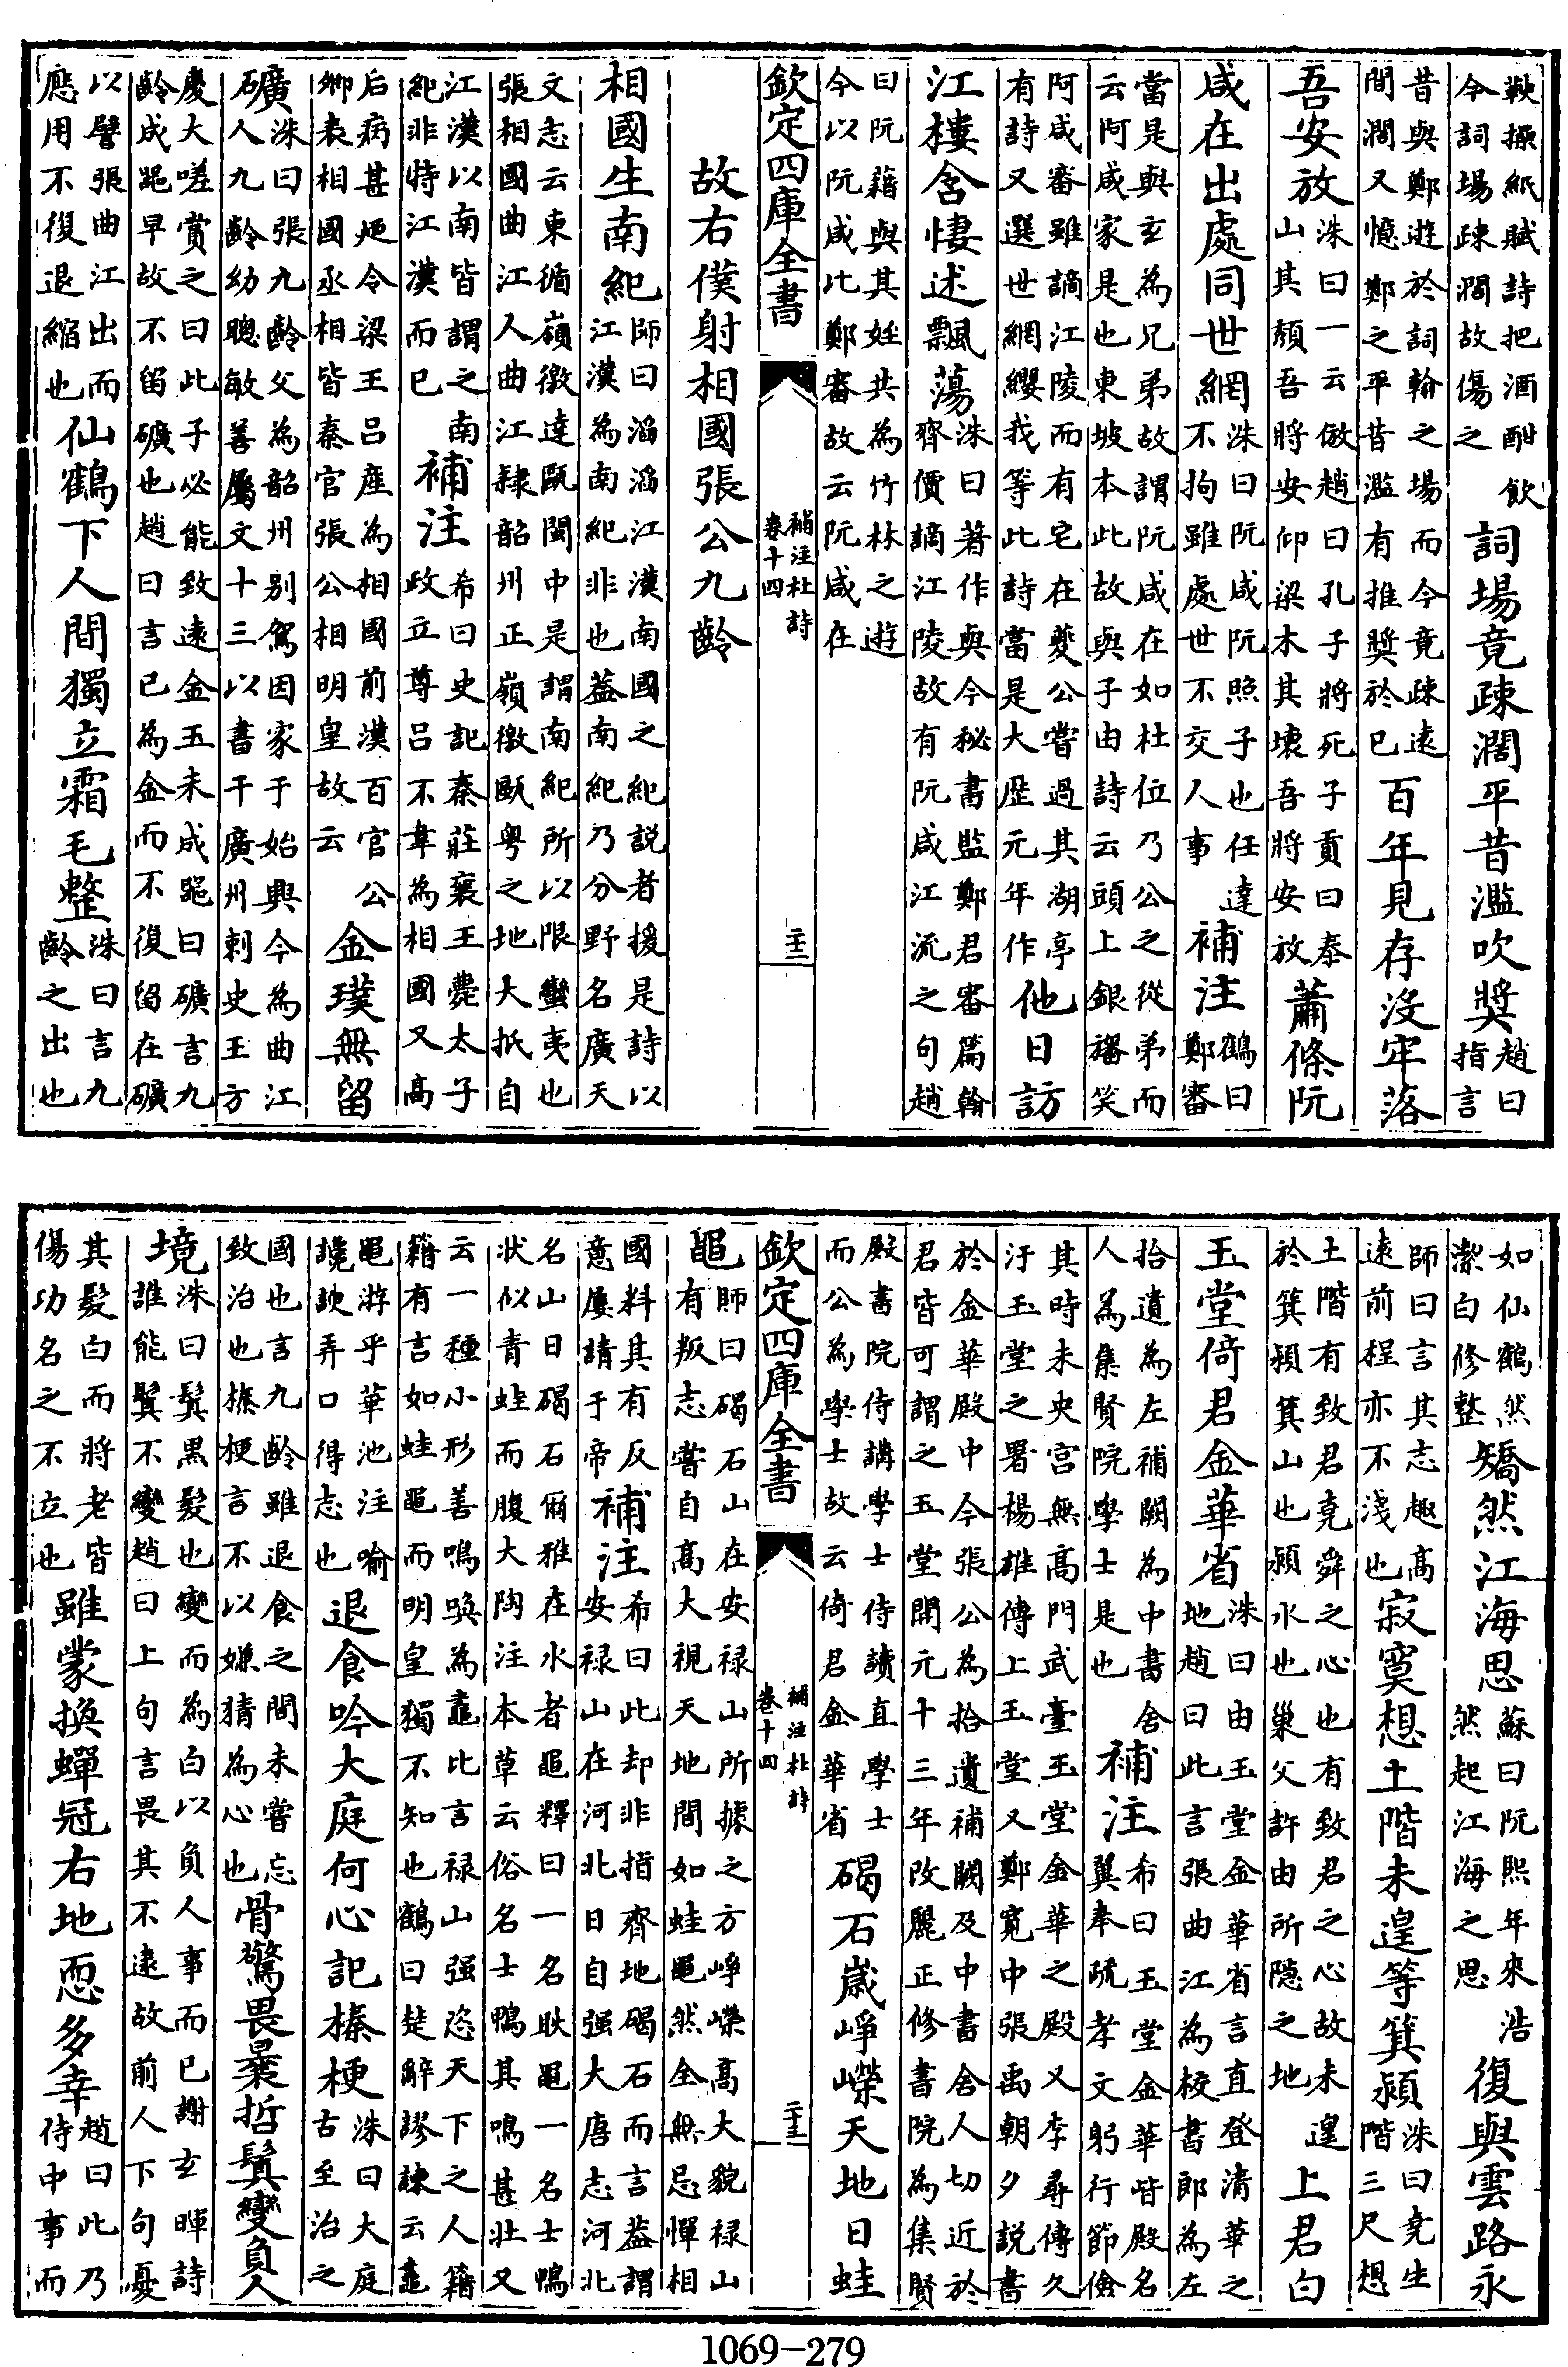 軟操紙賦詩把酒酣飲
今詞場疎濶故傷之
詞場竟疎濶平昔濫吹奬
趙曰
指言
昔與鄭遊於詞翰之場而今竟疎遠
間濶又憶鄭之平昔濫有推奬於已
百年見存沒牢落
吾安放
洙曰一云倣趙曰孔子將死子貢曰泰
山其頽吾將安仰梁木其壞吾將安放
蕭條阮
咸在出處同世網
洙曰阮咸阮照子也任達
不拘雖處世不交人事
補注
鶴曰
鄭審
當是與玄為兄弟故謂阮咸在如杜位乃公之從弟而
云阿咸家是也東坡本此故與子由詩云頭上銀旛笑
阿咸審雖謫江陵而有宅在夔公嘗過其湖亭
有詩又選世網纓我等此詩當是大歴元年作
他日訪
江樓含悽述飄蕩
洙曰著作與今秘書監鄭君審篇翰
齊價謫江陵故有阮咸江流之句趙
曰阮藉與其姪共為竹林之遊
今以阮咸比鄭審故云阮咸在
欽定四庫全書
補注杜詩
卷十四
二十二
故右僕射相國張公九齡
相國生南紀
師曰滔滔江漢南國之紀説者援是詩以
江漢為南紀非也葢南紀乃分野名廣天
文志云東循嶺徼達甌閩中是謂南紀所以限蠻夷也
張相國曲江人曲江隸韶州正嶺徼甌粤之地大抵自
江漢以南皆謂之南
紀非特江漢而已
補注
希曰史記秦莊襄王薨太子
政立尊吕不韋為相國又髙
后病甚廼令梁王吕産為相國前漢百官公
卿表相國丞相皆秦官張公相明皇故云
金璞無留
礦
洙曰張九齡父為韶州别駕因家于始興今為曲江
人九齡幼聰敏善屬文十三以書干廣州刺史王方
慶大嗟賞之曰此子必能致遠金玉未成噐曰礦言九
齡成噐早故不留礦也趙曰言已為金而不復留在礦
以譬張曲江出而
應用不復退縮也
仙鶴下人間獨立霜毛整
洙曰言九
齡之出也
如仙鶴然
潔白修整
矯然江海思
蘇曰阮熙年來浩
然起江海之思
復與雲路永
師曰言其志趣髙
遠前程亦不淺也
寂寞想土階未遑等箕潁
洙曰堯生
階三尺想
土階有致君堯舜之心也有致君之心故未遑
於箕潁箕山也潁水也巢父許由所隠之地
上君白
玉堂倚君金華省
洙曰由玉堂金華省言直登清華之
地趙曰此言張曲江為校書郎為左
拾遺為左補闕為中書舍
人為集賢院學士是也
補注
希曰玉堂金華皆殿名
翼奉疏孝文躬行節儉
其時未央宫無髙門武臺玉堂金華之殿又李尋傳久
汙玉堂之署楊雄傳上玉堂又鄭寛中張禹朝夕説書
於金華殿中今張公為拾遺補闕及中書舍人切近於
君皆可謂之玉堂開元十三年改麗正修書院為集賢
殿書院侍講學士侍讀直學士
而公為學士故云倚君金華省
碣石歲崢嶸天地日蛙
欽定四庫全書
補注杜詩
卷十四
二十三
黽
師曰碣石山在安禄山所據之方崢嶸髙大貌禄山
有叛志嘗自髙大視天地間如蛙黽然全無忌憚相
國料其有反
意屢請于帝
補注
希曰此却非指齊地碣石而言葢謂
安禄山在河北日自强大唐志河北
名山曰碣石爾雅在水者黽釋曰一名耿黽一名土鴨
狀似青蛙而腹大陶注本草云俗名土鴨其鳴甚壯又
云一種小形善鳴喚為鼃比言禄山强恣天下之人籍
籍有言如蛙黽而明皇獨不知也鶴曰楚辭謬諫云鼃
黽游乎華池注喻
讒諛弄口得志也
退食吟大庭何心記榛梗
洙曰大庭
古至治之
國也言九齡雖退食之間未嘗忘
致治也榛梗言不以嫌猜為心也
骨驚畏曩哲鬒變負人
境
洙曰鬒黒髮也變而為白以負人事而已謝玄暉詩
誰能鬒不變趙曰上句言畏其不逮故前人下句憂
其髮白而將老皆
傷功名之不立也
雖蒙換蟬冠右地恧多幸
趙曰此乃
侍中事而
1069-279